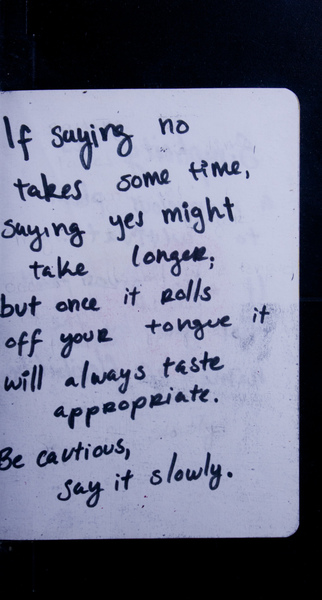 If saying no
takes some time,
saying yes might
take longer;
but once it rolls
off your tongue it
will always taste
appropriate.
Be cautious,
say it slowly.